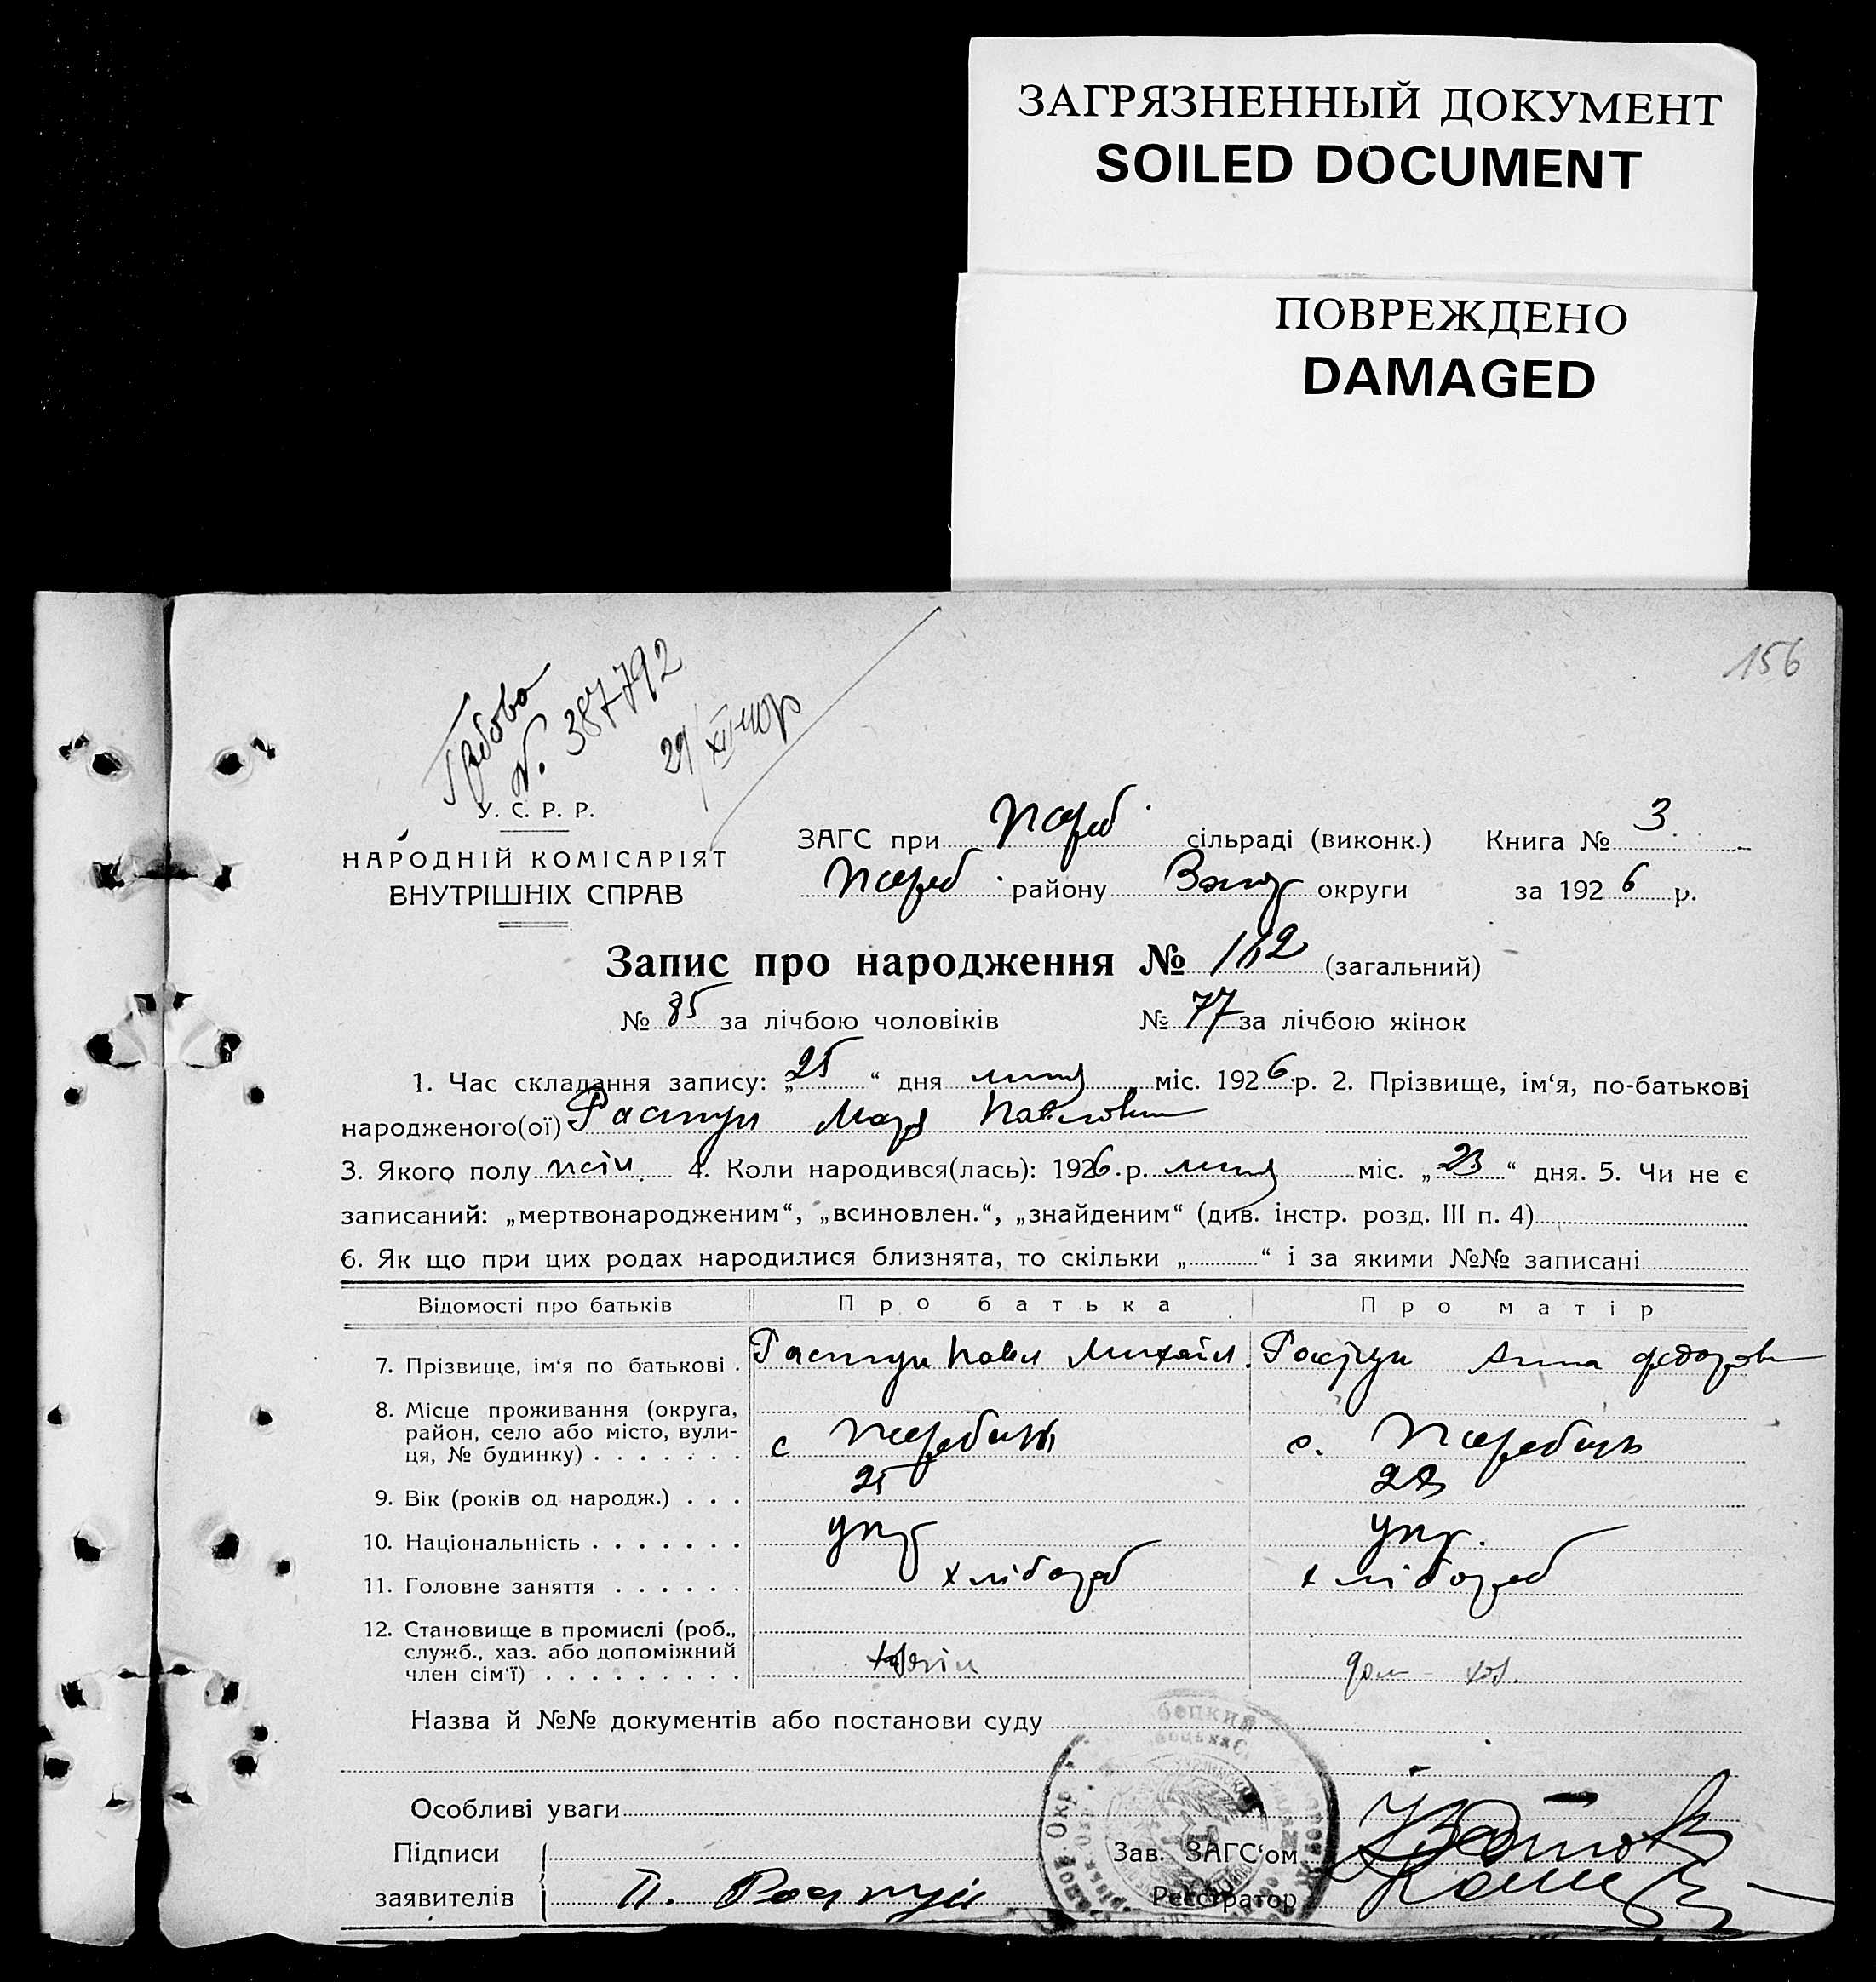 ЗАГРЯЗНЕННЫЙ ДОКУМЕНТ
SOILED DOCUMENT
ПОВРЕЖДЕНО
DAMAGED
156
№ 387792
29/XII-40р
У. С. Р. Р.
НАРОДНІЙ КОМІСАРІЯТ
ВНУТРІШНІХ СПРАВ
ЗАГС при сільраді (виконк.) Книга № 3.
району округи за 1926 р.
Запис про народження № (загальний)
№ 85 за лічбою чоловіків № 77 за лічбою жінок
1. Час складання запису: „25“ дня липня міс. 1926 р. 2. Прізвище, ім‘я, по-батькові
народженого(ої) Растун Марія Павловна
3. Якого полу жін. 4. Коли народився(лась): 1926 р. липня міс. „23“ дня. 5. Чи не є
записаний: „мертвонародженим“, „всиновлен.“, „знайденим“ (див. інстр. розд. III п. 4)
6. Як що при цих родах народилися близнята, то скільки „ “ і за якими №№ записані
Відомості про батьків Про батька Про матір
7. Прізвище, ім‘я по батькові . Растун Павел Михайл. Растун Анна Федоров
8. Місце проживання (округа,
район, село або місто, вули-
ця, № будинку) . . . . . . . с с.
9. Вік (років од народж.) . . . 25
10. Національність . . . . . . . укр укр.
11. Головне заняття . . . . . . хлібороб хлібороб
12. Становище в промислі (роб.,
служб., хаз. або допоміжний
член сім‘ї) . . . . . . . . . хазяін дом хаз.
Назва й №№ документів або постанови суду
Особливі уваги
Підписи Зав. ЗАГС‘ом
заявителів П. Растун Реєстратор